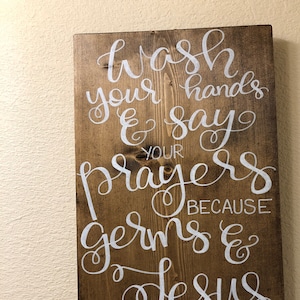 wash
your hands
& say
YOUR
prayers
BECAUSE
germs &
Jesus